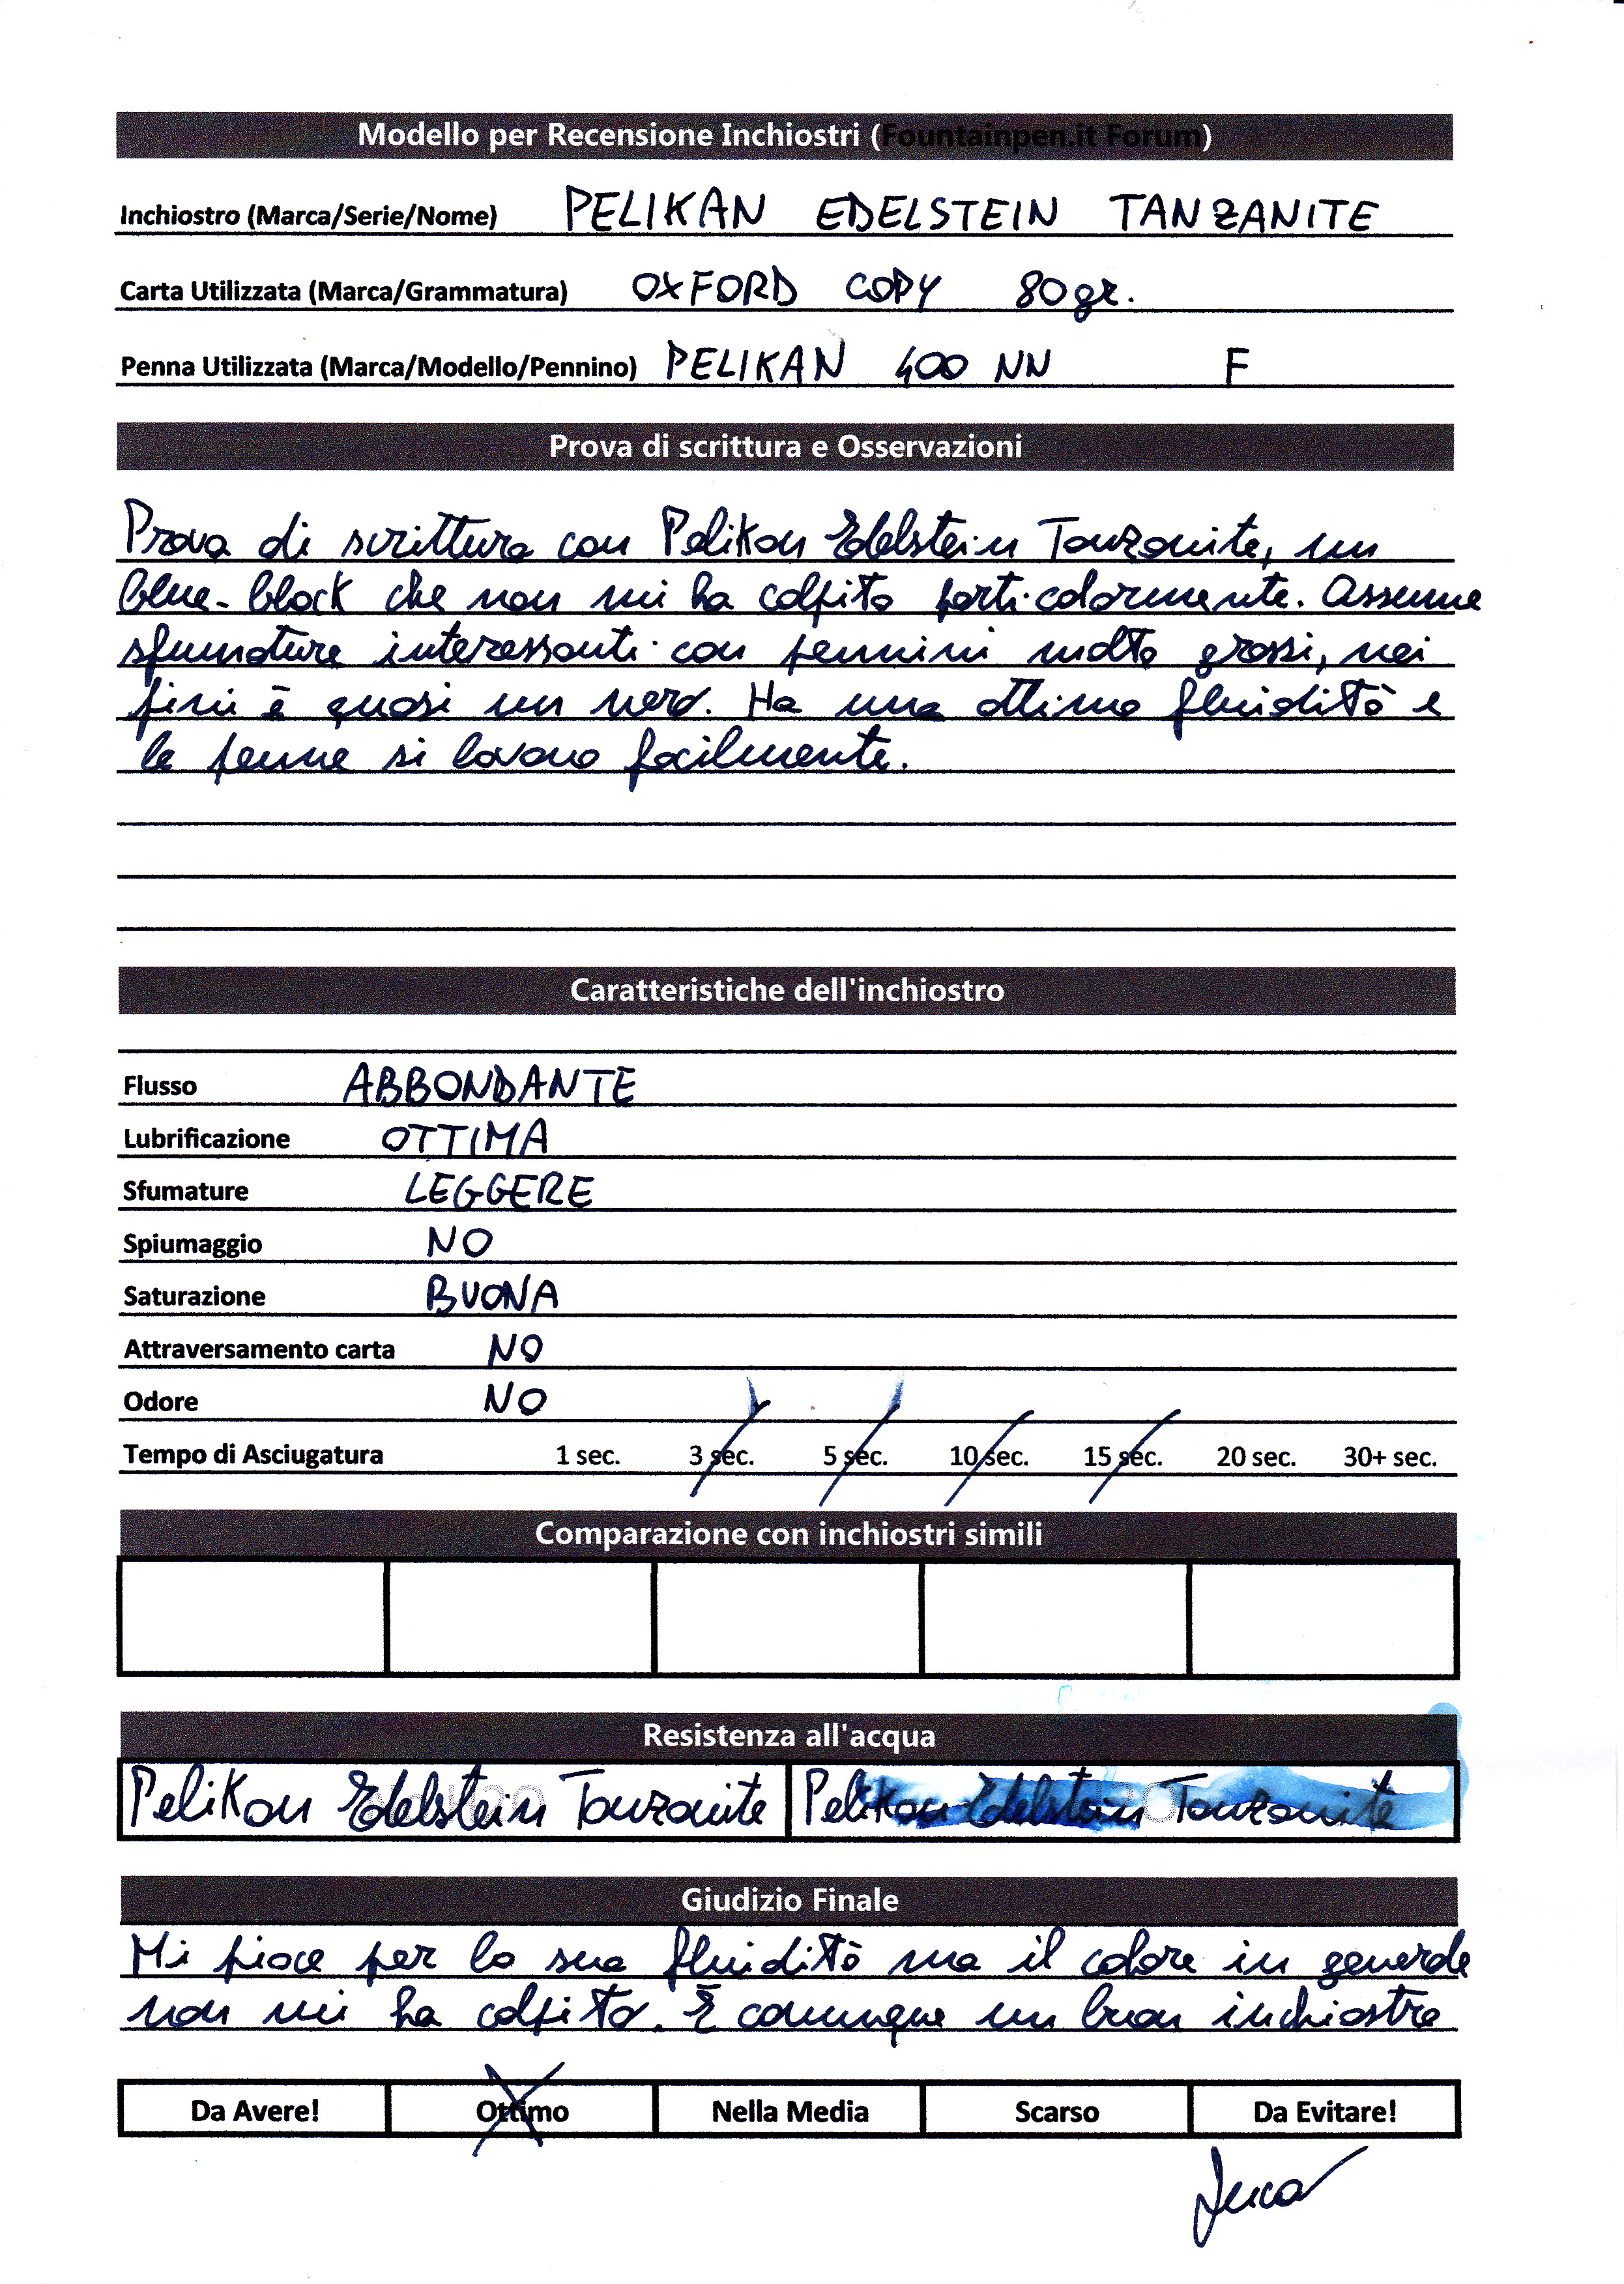 Modello per Recensione Inchiostri (Fountainpen.it Forum)
Inchiostro (Marca/Serie/Nome) PELIKAN EDELSTEIN TANZANITE
Carta Utilizzata (Marca/Grammatura) OXFORD COPY 80gr.
Penna Utilizzata (Marca/Modello/Pennino) PELIKAN 400 NN F
Prova di scrittura e Osservazioni
Prova di scrittura con Pelikan Edelstein Tanzanite, un
blue-black che non mi ha colpito particolarmente. Assume
sfumature interessanti con pennini molto grossi, nei
fini è quasi un nero. Ha una ottima fluidità e
le penne si lavano facilmente.
Caratteristiche dell'inchiostro
Flusso ABBONDANTE
Lubrificazione OTTIMA
Sfumature LEGGERE
Spiumaggio NO
Saturazione BUONA
Attraversamento carta NO
Odore NO
Tempo di Asciugatura 1 sec. 3 sec. 5 sec. 10 sec. 15 sec. 20 sec. 30+ sec.
Comparazione con inchiostri simili
Resistenza all'acqua
Pelikan Edelstein Tanzanite Pelikan Edelstein Tanzanite
Giudizio Finale
Mi piace per la sua fluidità ma il colore in generale
non mi ha colpito. È comunque un buon inchiostro
Da Avere! Ottimo Nella Media Scarso Da Evitare!
Luca